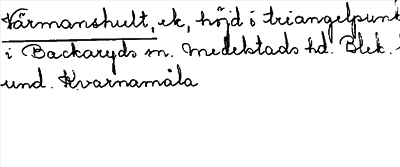 Värmanshult, ek, höjd i triangelpunkt
i Backaryds sn. Medelstads hd. Blek.
und. Kvarnamåla